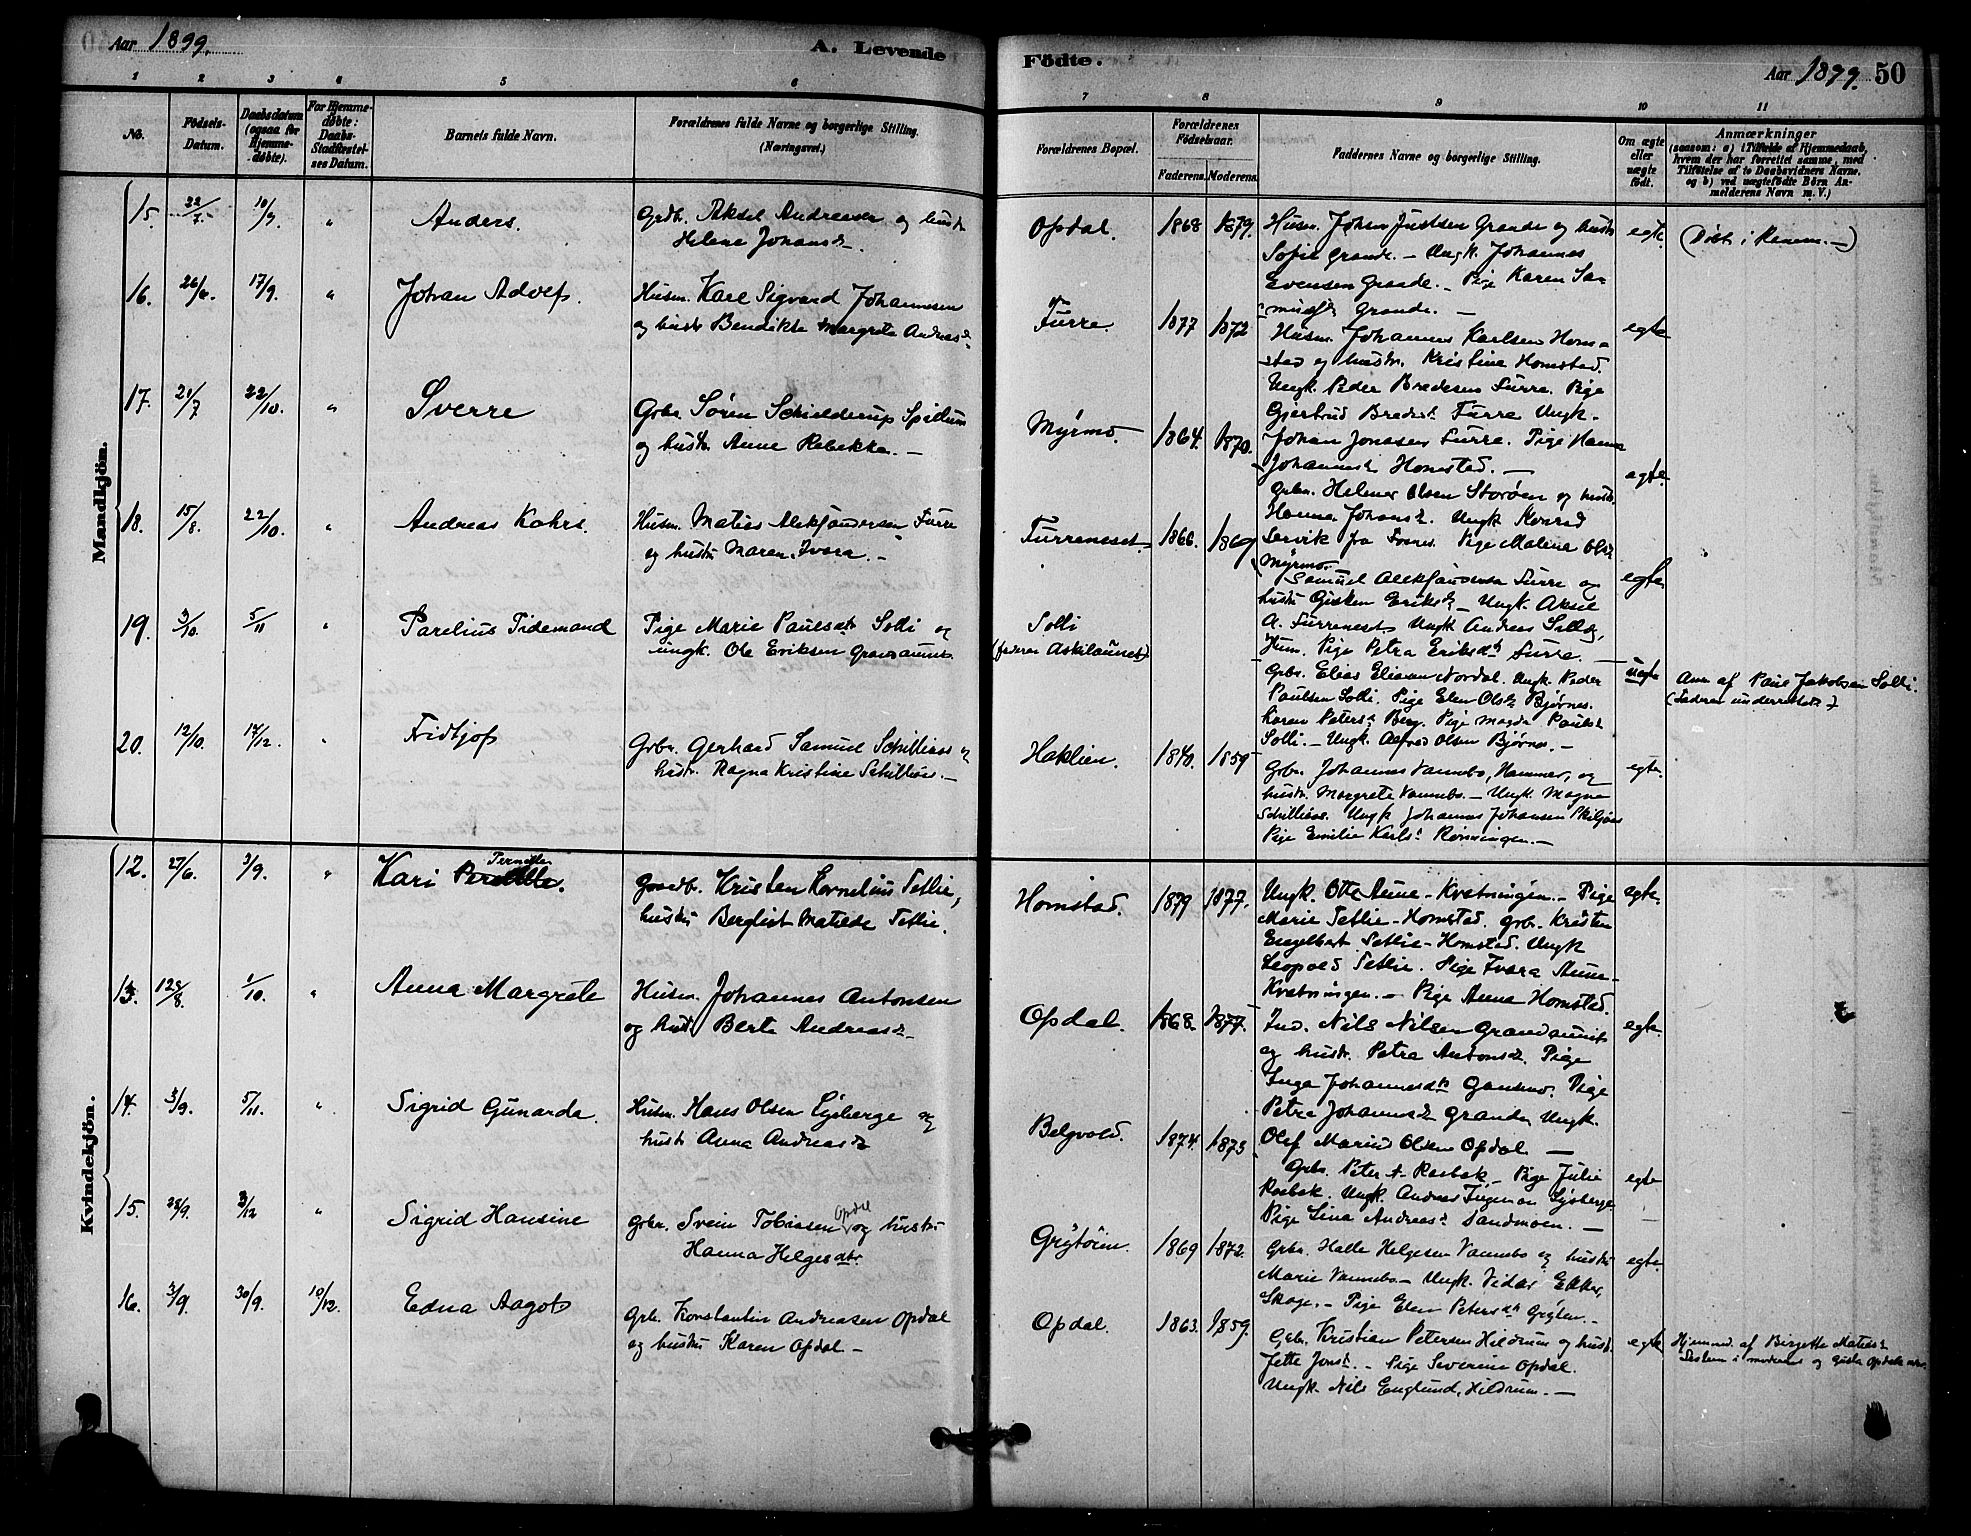 Aar 1899.
A. Levende
1 2 3 4 5 6
No.
Födsels-Datum.
Daabsdatum (ogsaa for Hjemme-døbte).
For Hjemme-døbte: Daabs-Stadfæstel-ses Datum.
Barnets fulde Navn.
Forældrenes fulde Navne og borgerlige Stilling.
(Næringsvei.)
Mandkjön.
15. 22/7. 10/9. " Anders. Grdbr. Aksel Andreassen og hustr
Helene Johansd.
16. 26/6. 17/9. " Johan Adolf. Husm. Karl Sigvard Johannesen
og hustr Bendikte Margrete Andreasd
17. 21/7 22/10. " Sverre Grbr. Sören Schielderup Spillum
og hustr. Anne Rebekka. —
18. 15/8. 22/10. " Andreas Kohrs. Husm. Matias Aleksandersen Furre
og hustr Maren Ivara. —
19. 3/10. 5/11 " Parelius Tidemand Pige Marie Paulsdtr Solli og
ungk. Ole Eriksen Gransaunet.
20. 12/10. 17/12. " Fridtjof Grbr. Gerhard Samuel Schilliaas og
hustr. Ragna Kristine Schilliaas. —
Kvindekjön.
12. 27/6. 3/9. " Kari Pernille. Gaardbr. Kristen Kornelius Sellie,
hustr Bergliot Matilde Sellie.
13. 12/8. 1/10. " Anna Margrete Husm. Johannes Antonsen
og hustr Berte Andreasd
14. 3/9. 5/11. " Sigrid Gunarda. Husm. Hans Olsen Ljøberge og
hustr Anna Andreasd
15. 28/9. 3/12 " Sigrid Hansine Grbr. Svein Tobiasen Opdal og hustru
Hanna Helgesdtr.
16. 3/9. 30/9. 10/12. Edna Aagot Grbr. Konstantin Andreasen Opdal
og hustru Karen Opdal —
Födte.
Aar 1899. 50
7 8 9 10 11
Forældrenes Bopæl.
Forældrenes Födselsaar.
Faderens. Moderens.
Faddernes Navne og borgerlige Stilling.
Om ægte eller uægte födt.
Anmærkninger
(saasom: a) i Tilfælde af Hjemmedaab, hvem der har forrettet samme, med Tilføielse af to Daabsvidners Navne. og b) ved uægtefödte Börn An-melderens Navn m. V.)
Opdal. 1868 1879. Husm. Johan Justsen Grande og hustr egte. (Døbt i Ranem. —)
Sofie Grande. — Ungk. Johannes
Evensen Grande. — Pige Karen Sa-
muelsd Grande. —
Furre 1877 1872 Husm. Johannes Karlsen Hom- egte
stad og hustr. Kristine Homstad.
Ungk. Peder Bredesen Furre. Pige
Gjertrud Bredesd Furre Ungk.
Johan Jonasen Furre. Pige Hanna
Johannesd Homstad. —
Myrmo. 1864. 1870. egte.
Grbr. Helmer Olsen Storøen og hustr.
Hanna Johansd. Ungk Konrad
Servik fra Fosnes. Pige Malene Olsd
Myrmo.
Furreneset. 1866. 1869 egte
Samuel Aleksandersen Furre og
hustr Gisken Eriksd — Ungk. Aksel
A. Furreneset. Ungk Andreas
Hum. Pige Petra Eriksdtr Furre. —
Solli
(faderen Askilaunet)
uegte Anm af Paul Jakobsen Solli.
(Faderen underrettet)
Grbr. Elias Eliasen Nordal. Ungk. Peder
Paulsen Solli. Pige Elen Olsd Bjørnes.
Karen Petersd Berg. Pige Magda Paulsd
Solli. — Ungk. Alfred Olsen Bjørnes. —
Haklien. 1840. 1859 egte.
Grbr. Johannes Vannebo, Hammer, og
hustr. Margrete Vannebo. — Ungk. Magne
Schilliaas. Ungk Johannes Johansen
Pige Emilie Karlsd Rønningen. —
Homstad. 1879 1877. Ungk. Otto Aune - Kvatningen. — Pige egte.
Marie Sellie - Homstad. Grbr. Kristen
Engelbert Sellie - Homstad. Ungk
Leopold Sellie. Pige Ivara Aune-
Kvatningen. — Pige Anna Homstad.
Opdal. 1868. 1877. Ind. Nils Nilsen Grandaunet egte.
og hustr. Petra Antonsd. Pige
Inga Johannesdtr Gansmo. Pige
Petra Johannesd Grande, Ungk.
Olaf Marius Olsen Opdal —
Belgvold. 1874. 1873 egte
Grbr. Peter A. Rosbak. — Pige Julie
Rosbak. Ungk. Andreas Ingeman Ljøberge
Pige Lina Andreasd Sandmoen. —
Grytøien. 1869 1872. Grbr. Halle Helgesen Vannebo og hustru egte.
Marie Vannebo — Ungk. Vidar Ekker,
Skage. — Pige Elen Petersdtr Grøten. —
Opdal. 1863. 1859. Grbr. Kristian Petersen Hildrum og hustr. egte Hjemmed. af Birgitte Matiasd
Jette Jonsd. — Pige Severine Opdal.
Ungk Nils Englund, Hildrum. —